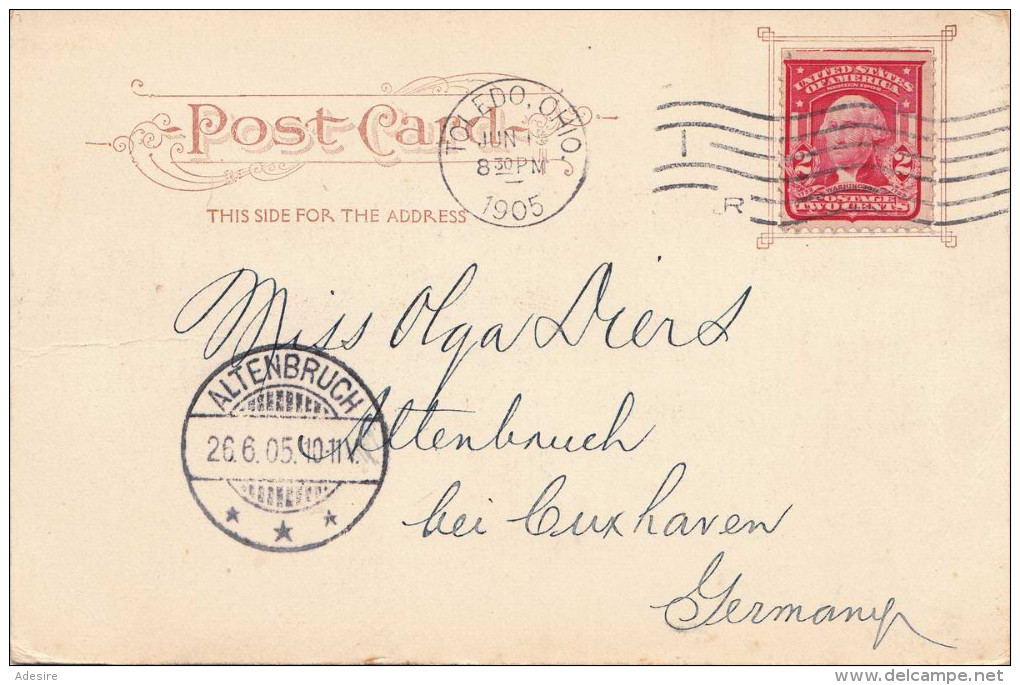 Post Card
THIS SIDE FOR THE ADDRESS
TOLEDO, OHIO.
JUN 1
8 30 PM
1905
1
R
UNITED STATES
OF AMERICA
SERIES 1902
2 2
WASHINGTON
POSTAGE
TWO CENTS
Miss Olga Diers
Altenbruch
bei Cuxhaven
Germany
ALTENBRUCH
26.6.05. 10-11 V.
Adesire
delcampe.net